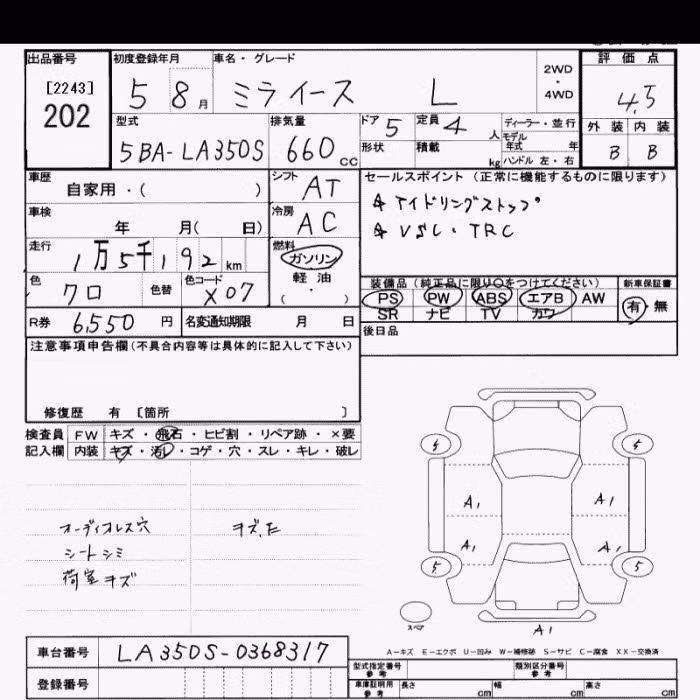 出品番号 初度登録年月 車名・グレード 評価点
[2243] 202 5 8月 ミライース L 2WD・4WD 4.5
型式 排気量 ドア 5 定員 4人 ディーラー・並行 外装 内装
5BA-LA350S 660cc 形状 積載 kg モデル年式 年 ハンドル 左・右 B B
車歴 自家用・( ) シフト AT セールスポイント(正常に機能するものに限ります)
車検 年 月( 日) 冷房 AC アイドリングストップ
走行 1万5千192km 燃料 ガソリン VSC・TRC
軽油
( ・ )
色 クロ 色替 色コード X07 装備品(純正品に限り○をつけてください) 新車保証書
PS PW ABS エアB AW 有・無
SR ナビ TV カワ
R券 6,550円 名変通知期限 月 日 後日品
注意事項申告欄(不具合内容等は具体的に記入して下さい)
修復歴 有 [箇所 ]
検査員 FW キズ・飛石・ヒビ割・リペア跡・×要
記入欄 内装 キズ・汚レ・コゲ・穴・スレ・キレ・破レ
オーディオレス穴
シートシミ
荷室キズ
5 5
A1 A1
A1 A1
5 5
スペア
A1
A-キズ E-エクボ U-凹み W-補修跡 S-サビ C-腐食 XX-交換済
車台番号 LA350S-0368317
型式指定番号 参考 類別区分番号 参考
登録番号 車庫証明用 参考 長さ cm 幅 cm 高さ cm